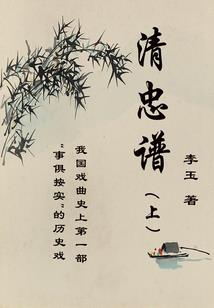 清忠谱
（上）
李玉 著
我国戏曲史上第一部
“事俱按实”的历史戏